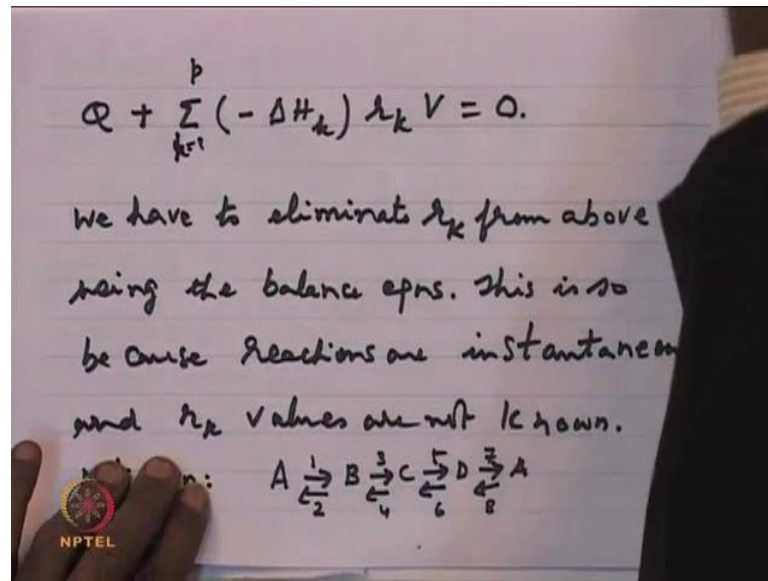 Q + Σ_{k=1}^{p} (- ΔH_k) r_k V = 0.
We have to eliminate r_k from above
using the balance eqns. This is so
because reactions are instantaneou
and r_k values are not known.
n: A ⇌ B ⇌ C ⇌ D ⇌ A
1 3 5 7
2 4 6 8
NPTEL